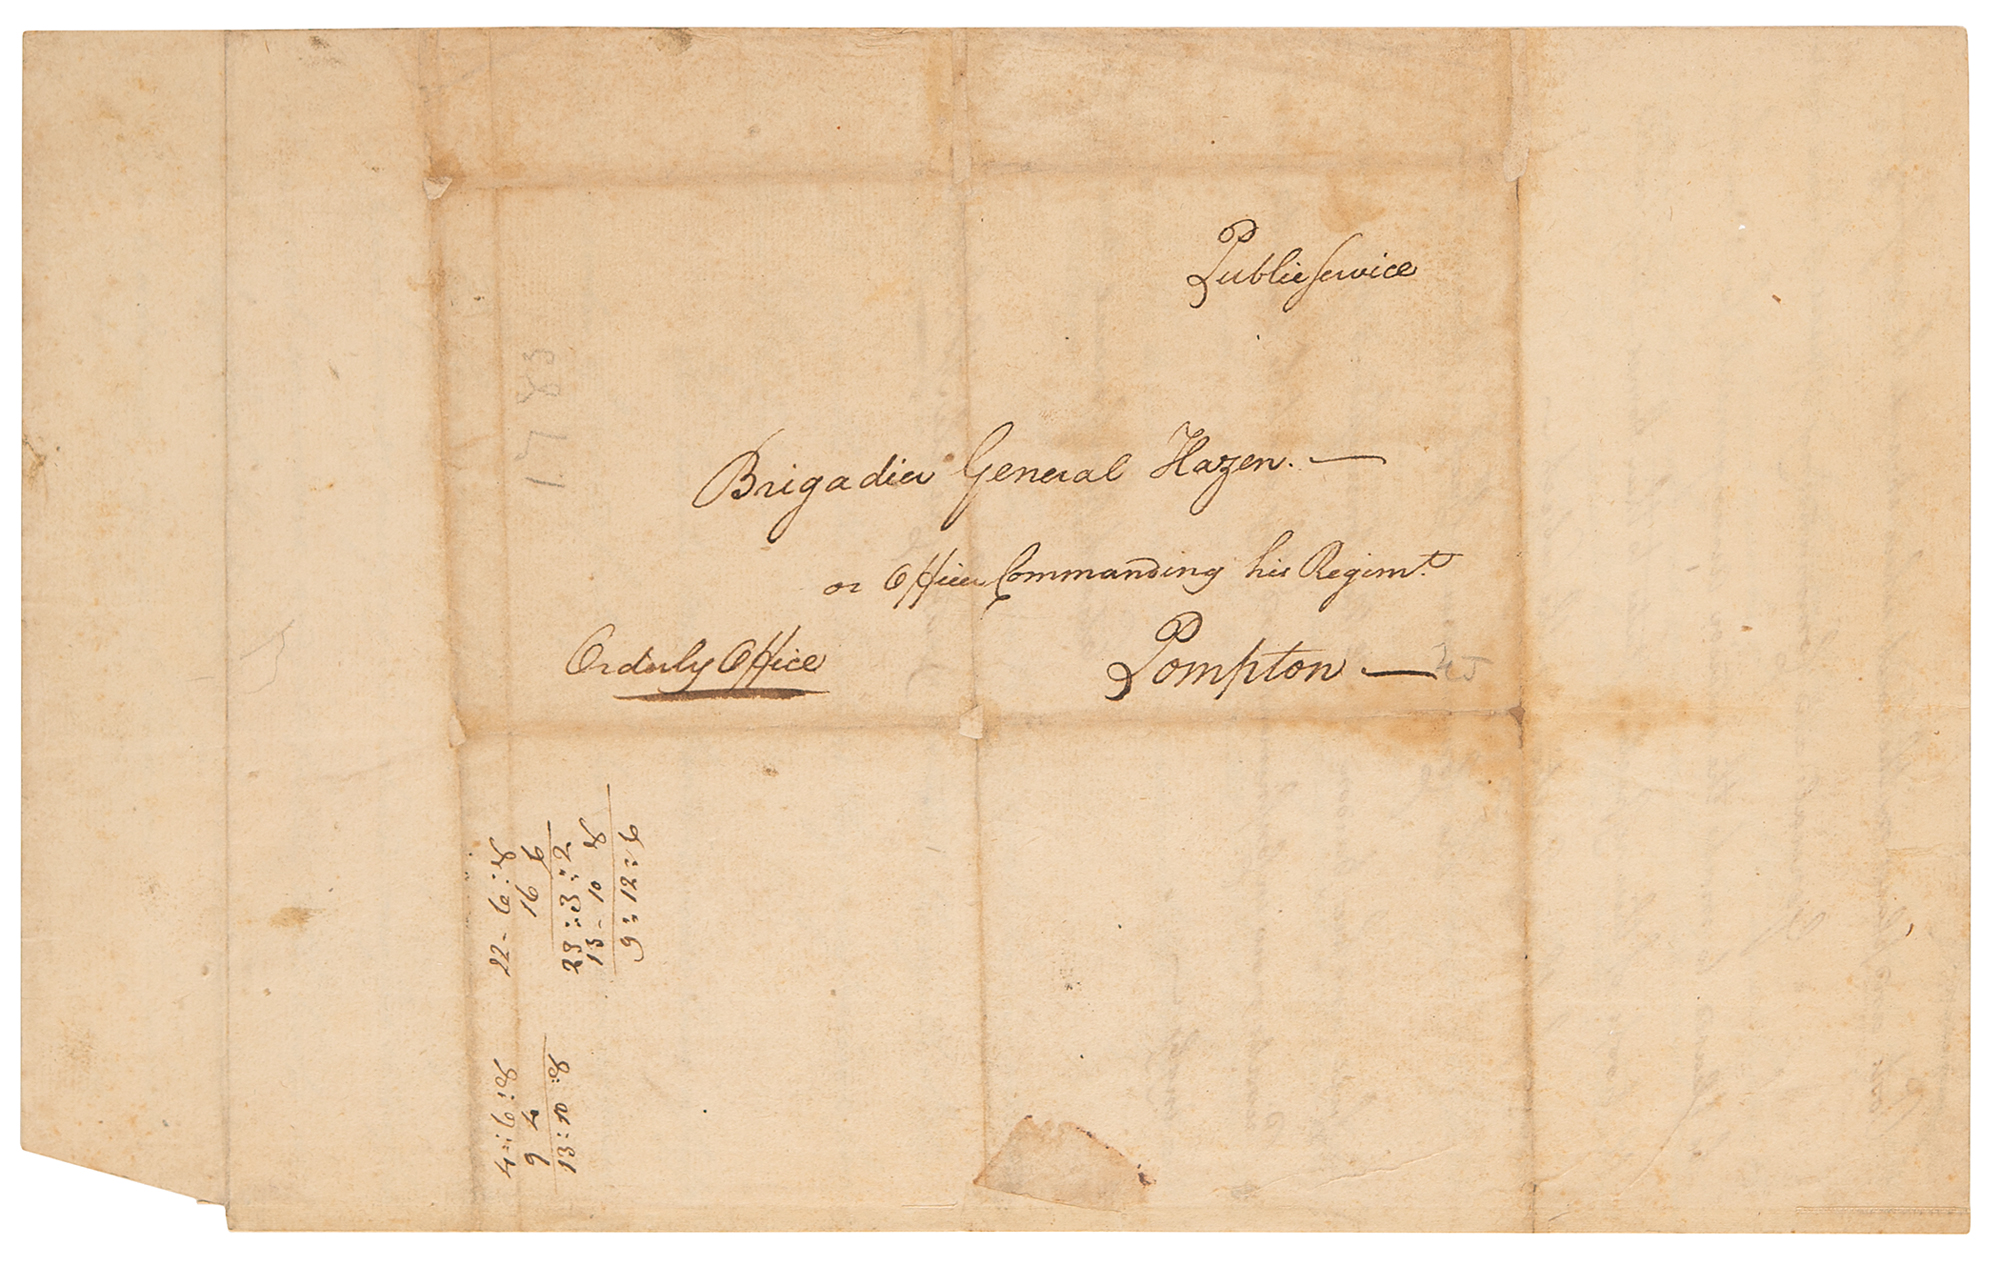 Public Service
1783
Brigadier General Hazen. —
or Officer Commanding his Regimt.
Orderly Office
Pompton — NJ
22 - 6 : 8
16 6
23 : 3 : 2
13 - 10 8
9 : 12 : 6
4 : 6 : 8
9 4
13 : 10 : 8